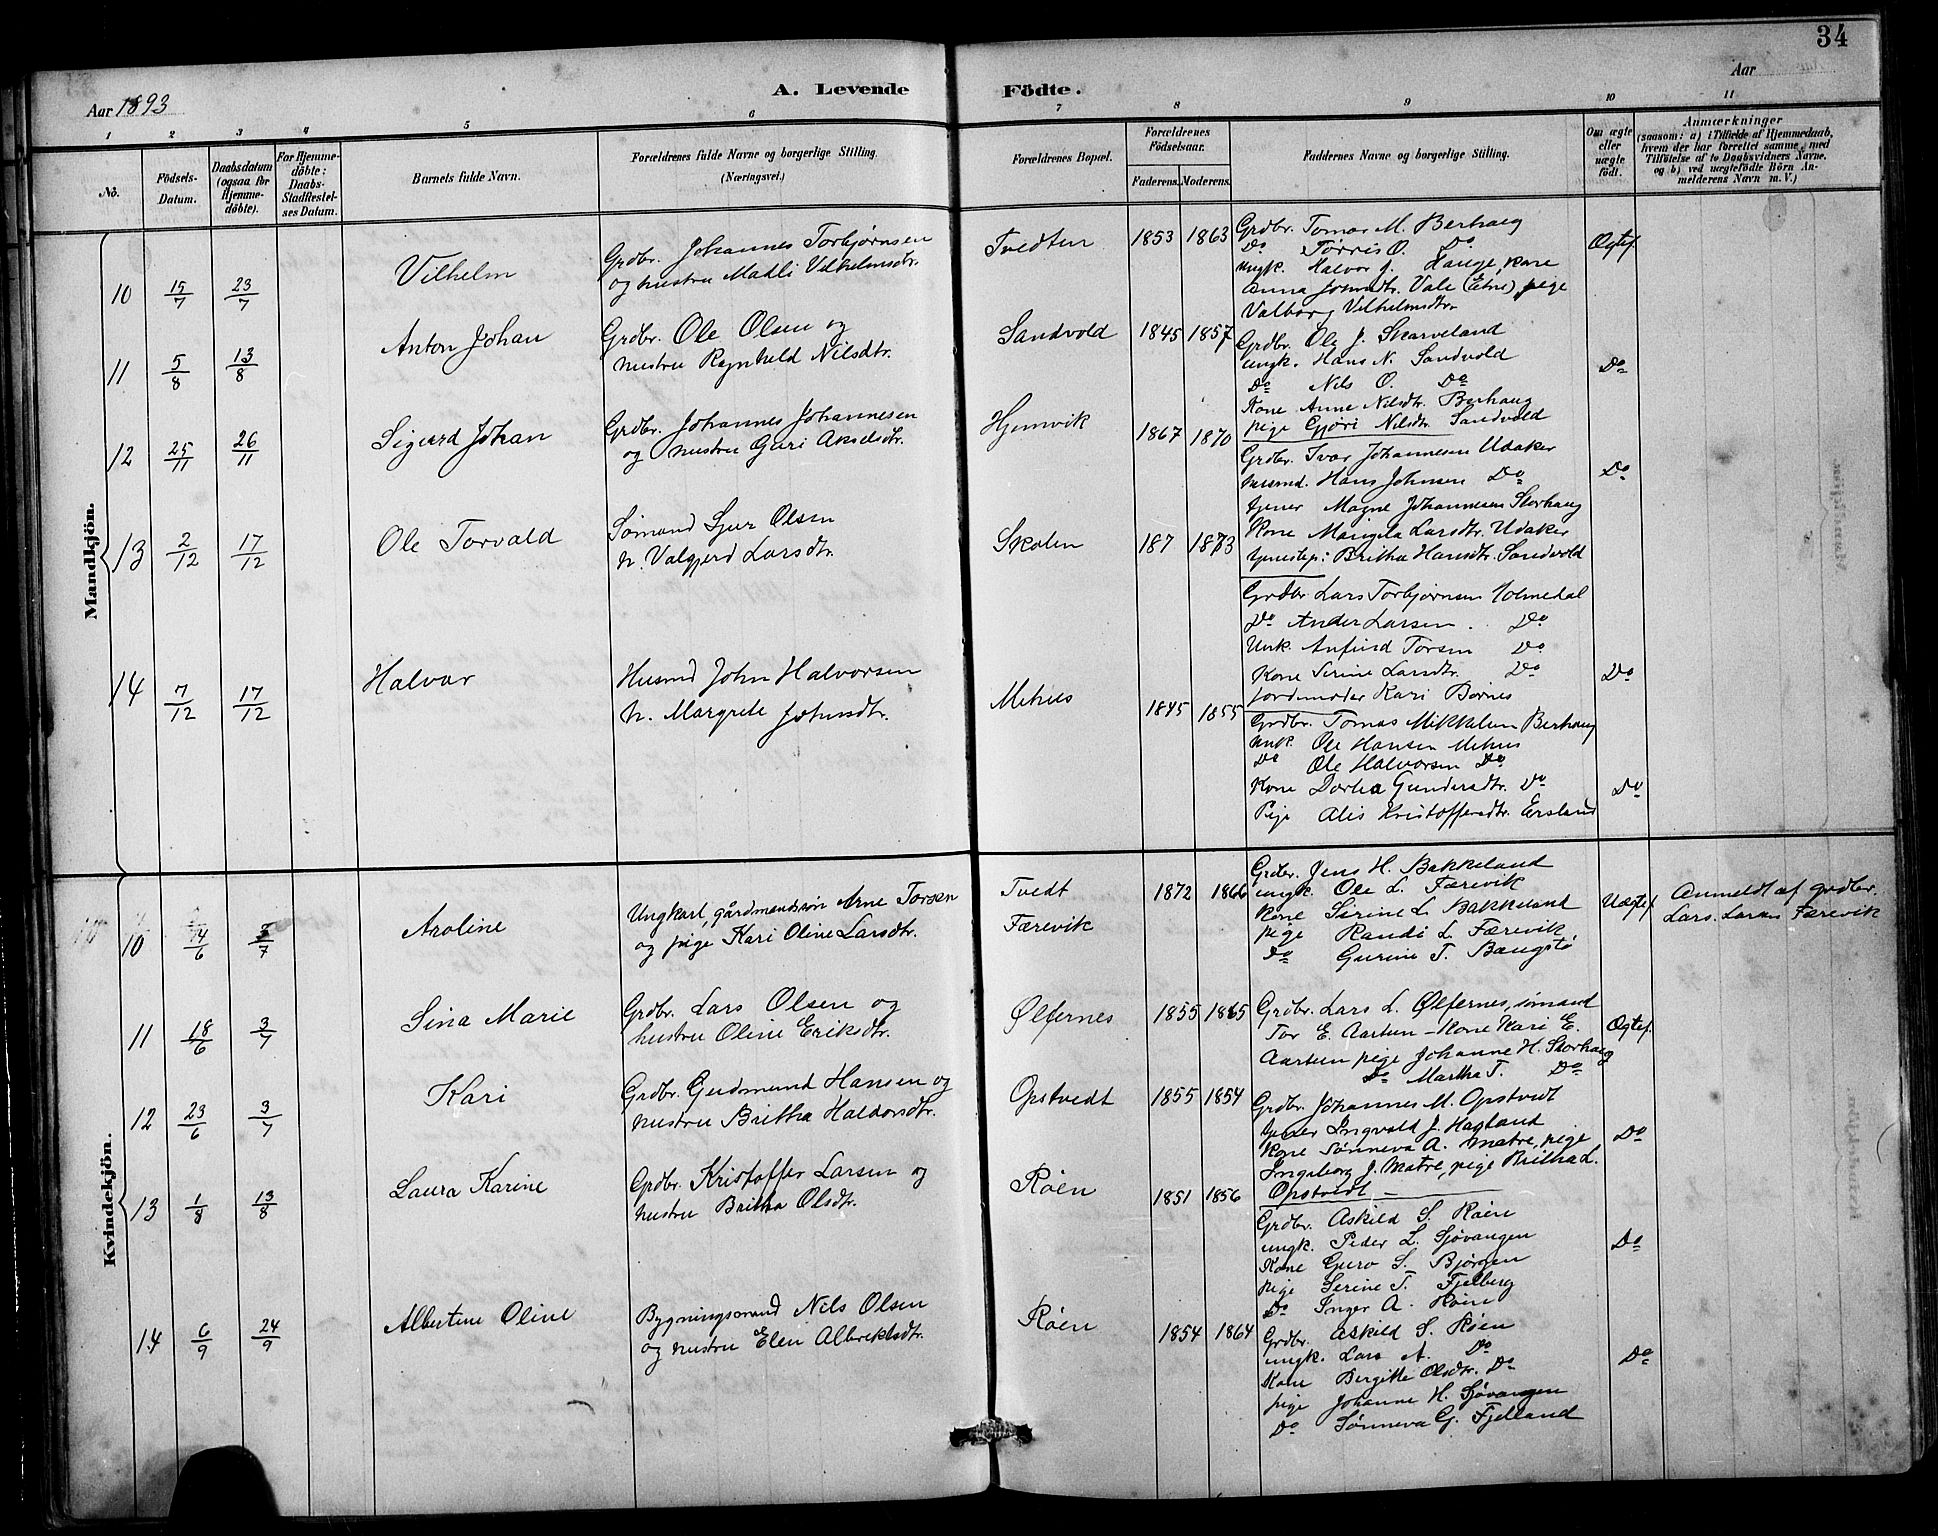 34
Aar 1893
A. Levende Födte.
Aar
1 2 3 4 5 6 7 8 9 10 11
No.
Födsels-Datum.
Daabsdatum (ogsaa for Hjemmedöbte).
For Hjemmedöbte: Daabs-Stadfestelses Datum.
Barnets fulde Navn.
Forældrenes fulde Navne og borgerlige Stilling.
(Næringsvei.)
Forældrenes Bopæl.
Forældrenes Födselsaar.
Faderens. Moderens.
Faddernes Navne og borgerlige Stilling.
Om ægte eller uægte födt.
Anmærkninger
(saasom: a) i Tilfælde af Hjemmedaab, hvem der har forrettet samme, med Tilföielse af to Daabsvidners Navne, og b) ved uægtefödte Börn Anmelderens Navn m. V.)
Mandkjön.
10 15/7 23/7 Vilhelm
Grdbr. Johannes Torbjørnsen
og hustru Madli Vilhelmsdtr.
Tvedten 1853 1863
Grdbr. Tomas M. Berhaug
Do Tørris O. Do
Ungk. Halvor J. Hauge, kone
Anna Johnsdtr. Vale (Etne) pige
Valborg Vilhelmsdtr.
Ogtef.
11 5/8 13/8 Anton Johan
Grdbr. Ole Olsen og
hustru Ragnhild Nilsdtr.
Sandvold 1845 1857
Grdbr. Ole J. Skarveland
ungk. Hans N. Sandvold
Do Nils O. Do
Kone Anne Nilsdtr. Berhaug
pige Gjøri Nilsdtr. Sandvold
Do
12 25/11 26/11 Sigurd Johan
Grdbr. Johannes Johannesen
og hustru Guri Akselsdtr.
Hjemvik 1867 1870
Grdbr. Ivar Johannesen Udaker
husmd. Hans Johnsen Do
tjener Magne Johannesen Storhaug
Kone Mangela Larsdtr. Udaker
tjenestep: Britha Hansdtr. Sandvold
Do
13 2/12 17/12 Ole Torvald
Sømand Sjur Olsen
h. Valgjerd Larsdtr.
Skolen 187 1873
Grdbr Lars Torbjørnsen Holmedal
Do Ander Larsen. Do
Unk. Anfind Torsen Do
Kone Serine Larsdtr. Do
Jordemoder Kari Børnes
Do
14 7/12 17/12 Halvar
Husmd John Halvorsen
h. Margrete Johnsdtr.
Mehus 1845 1855
Grdbr. Tomas Mikkelsen Berhaug
Unk. Ole Hansen Mehus
Do Ole Halvorsen Do
Kone Dorthea Gundersdtr. Do
Pige Alis Kristoffersdtr. Ersland
Do
Kvindekjön.
10 14/6 3/7 Aroline
Ungkarl, gårdmandssøn Arne Torsen
og pige Kari Oline Larsdtr.
Tvedt
Færevik
1872 1866
Grdbr. Jens H. Bakkeland
ungk. Ole L. Færevik
Kone Serine L. Bakkeland
pige Randi L. Færevik
Do Gurine T. Baugstø
Uægtef
Anmeldt af grdbr.
Lars Larsen Færevik
11 18/6 3/7 Sina Marie
Grdbr. Lars Olsen og
hustru Oline Eriksdtr.
Ølfernes 1855 1865
Grdbr. Lars L. Ølfernes, sømand
Tor E. Aarteun - Kone Kari E.
Aarteun pige Johanne H. Storhaug
Do Martha T. Do
Ogtef.
12 23/6 3/7 Kari
Grdbr. Gudmund Hansen og
hustru Britha Haldorsdtr.
Opstvedt 1855 1854
Grdbr. Johannes M. Opstvedt
tjener Ingvald J. Hagland
Kone Sønneva A. Matre, pige
Ingeborg J. Matre, pige Britha L.
Opstvedt
Do
13 1/8 13/8 Laura Karine
Grdbr. Kristoffer Larsen og
hustru Britha Olsdtr.
Røen 1851 1856
Grdbr. Askild S. Røen
ungk. Peder L. Sjøvangen
Kone Guro S. Bjørgen
pige Serine T. Fjelberg
Do Inger A. Røen
Do
14 6/9 24/9 Albertine Oline
Bygningsmand Nils Olsen
og hustru Elen Albrektsdtr.
Røen 1854 1864
Grdbr. Askild S. Røen
ungk. Lars A. Do
Kone Bergitte Olsdtr. Do
pige Johanne H. Sjøvangen
Do Sønneva G. Fjelland
Do